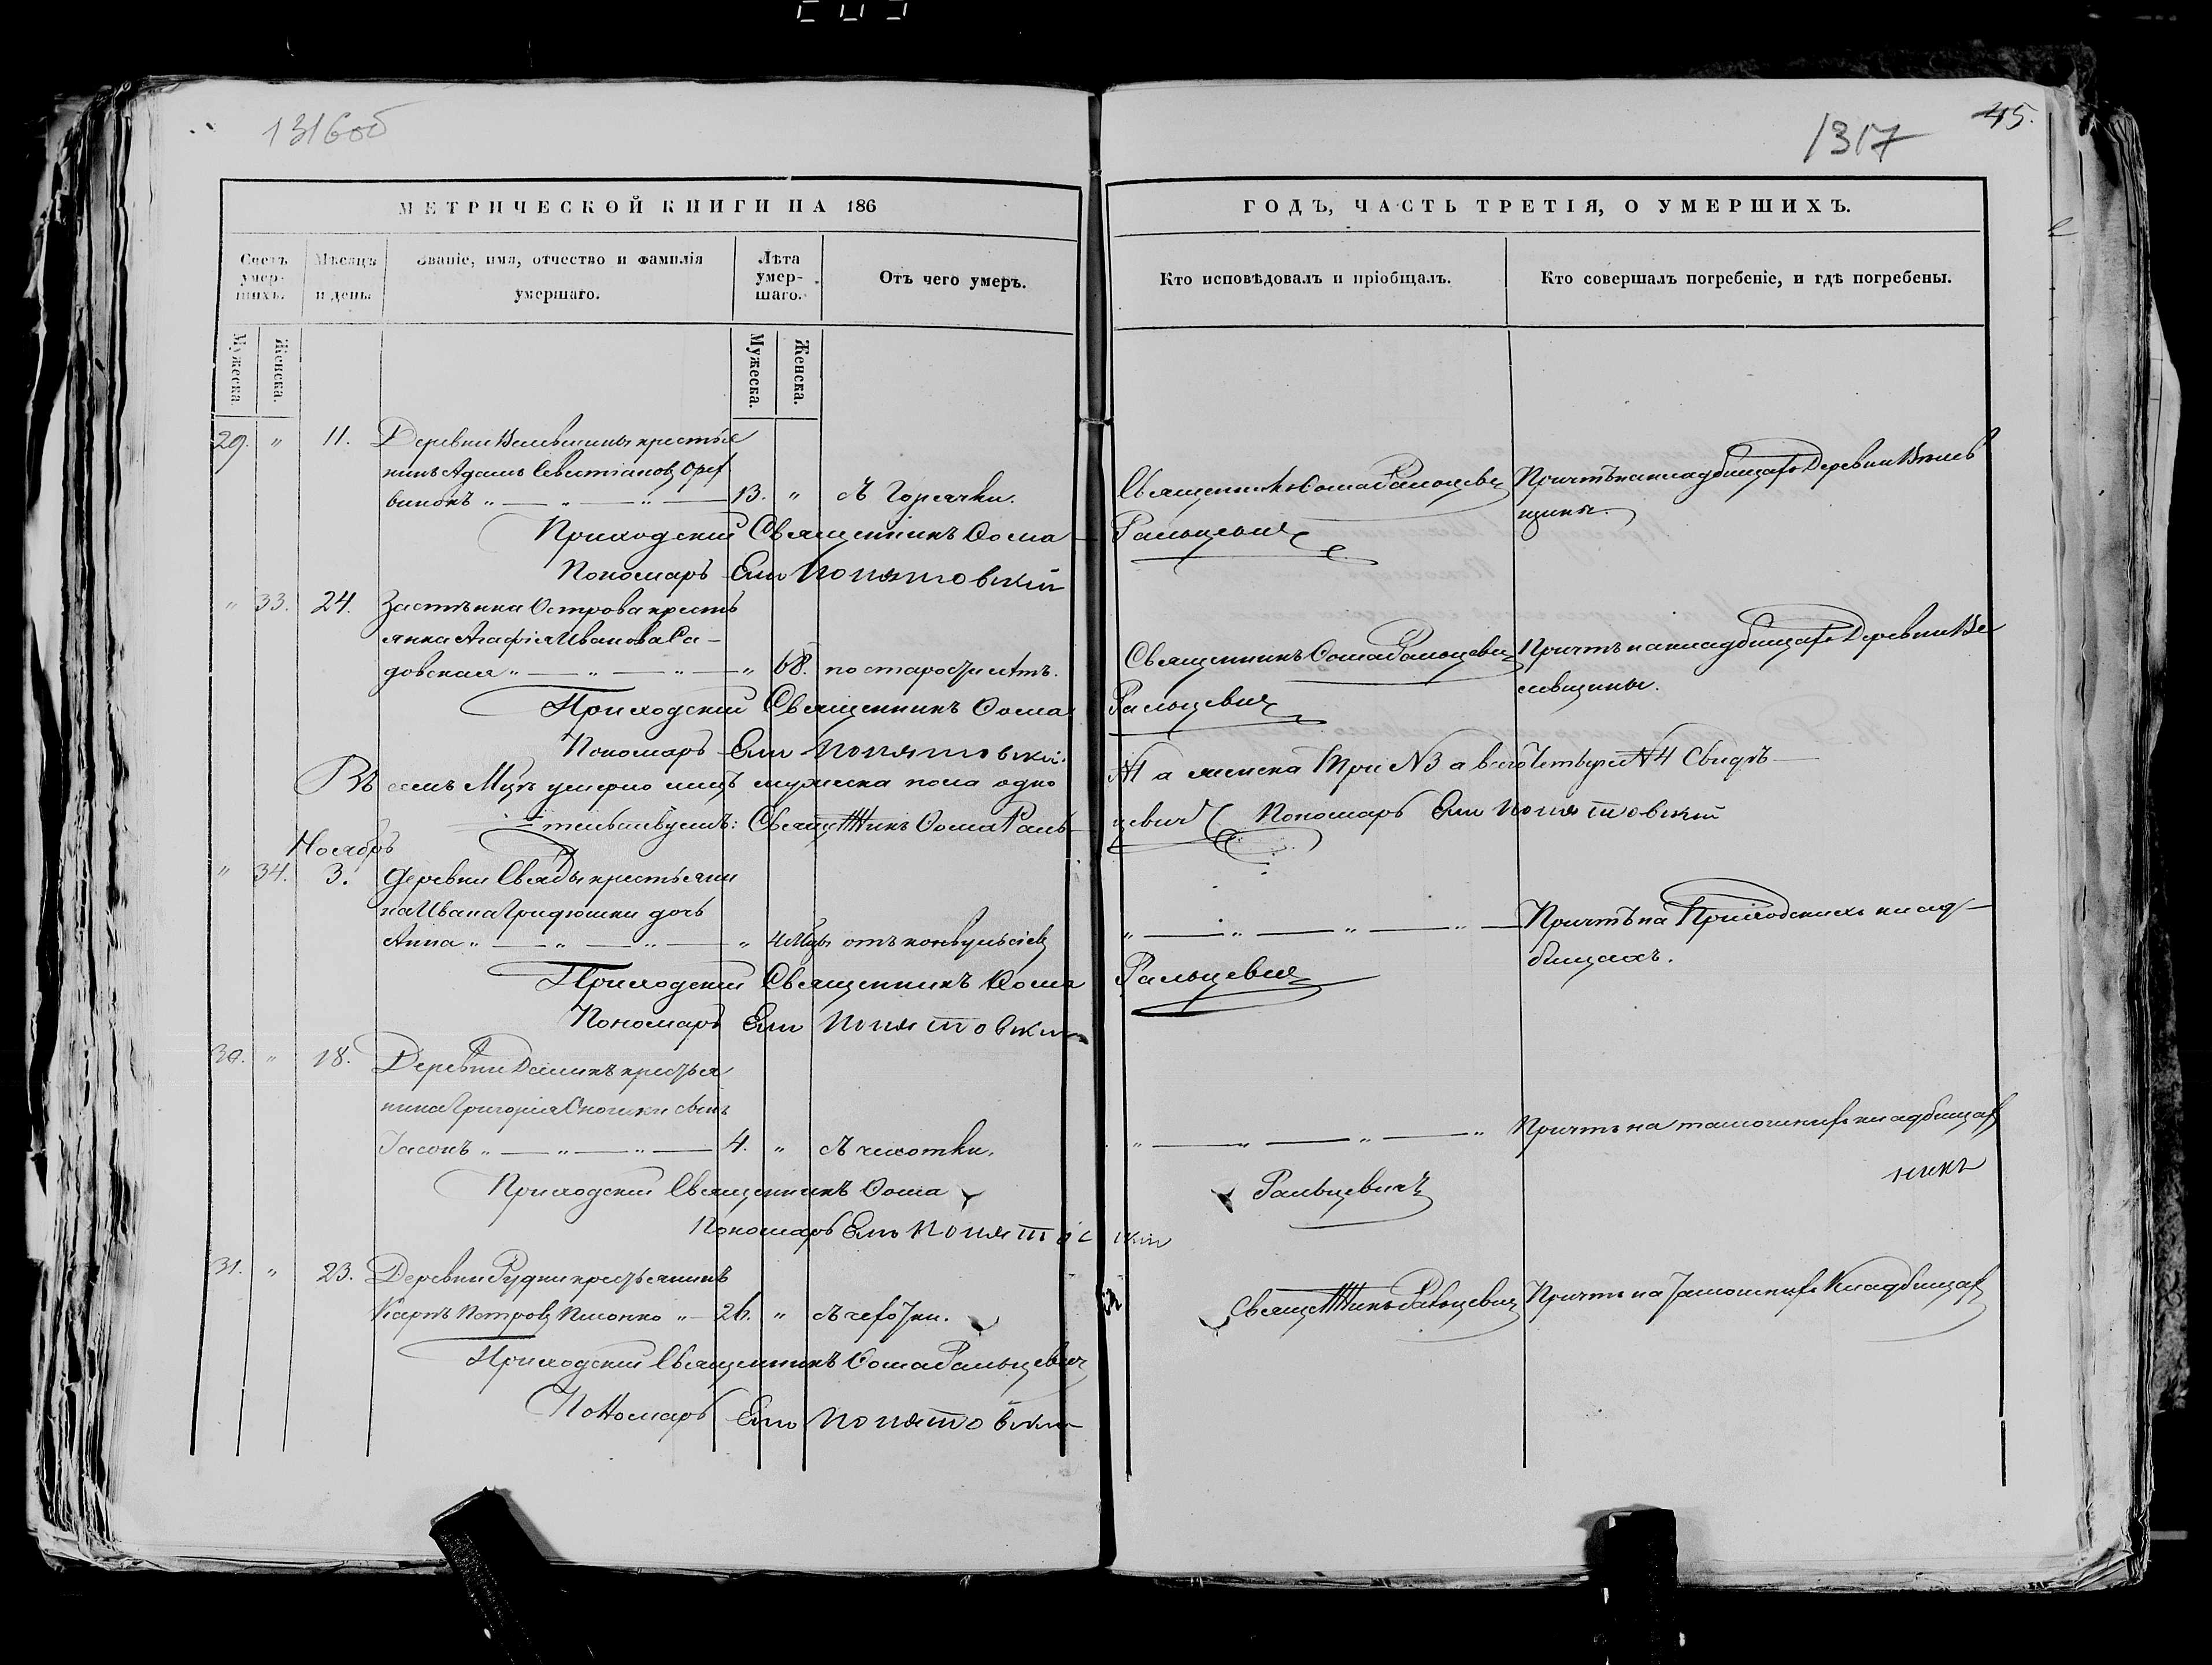 1316об
1317
45.
МЕТРИЧЕСКОЙ КНИГИ НА 186
ГОДЪ, ЧАСТЬ ТРЕТІЯ, О УМЕРШИХЪ.
Счетъ умер-шихъ.
Мѣсяцъ и день.
Званіе, имя, отчество и фамилія умершаго.
Лѣта умер-шаго.
Отъ чего умеръ.
Кто исповѣдовалъ и пріобщалъ.
Кто совершалъ погребеніе, и гдѣ погребены.
Мужеска.
Женска.
Мужеска.
Женска.
29. " 11. Деревни крестья
нинъ Адамъ Севестіановъ
13. " съ Горячки.
Священникъ Ѳома Ральцевичъ
Причтъ на кладбищахъ Деревни Велев
щины.
Приходскій Священникъ Ѳома Ральцевичъ
Пономарь Ели Понятовскій
" 33. 24. Застѣнка Острова кресть
янка Агафія Иванова Са-
довская " " 68. по старости лѣтъ.
Священникъ Ѳома Ральцевичъ
Причтъ на кладбищахъ Деревни Ве
левщины.
Приходскій Священникъ Ѳома Ральцевичъ
Пономарь Ели Понятовскій.
Въ семъ Мцѣ умерло лицъ мужеска пола одно №1 а женска Три №3 а всего Четыре №4 Свидѣ
тельствуемъ: Священникъ Ѳома Раль-цевичъ Пономарь Ели Понятовскій
Ноябрь
" 34. 3. Деревни Свяды крестьяни
на Ивана Гридюшки дочь
Анна " " 4 Мцы отъ конвульсіевъ
Причтъ на Приходскихъ клад-
бищахъ.
Приходскій Священникъ Ѳома Ральцевичъ
Пономарь Ели Понятовскій
30. " 18. Деревни крестья
нина Григорія сынъ
Іасонъ " 4. " съ чахотки.
Причтъ на тамошнихъ кладбищахъ
Приходскій Священникъ Ѳома Ральцевичъ
Пономарь Ели Понятовскій
31. " 23. Деревни Рудни крестьянинъ
Карпъ Петровъ 26. " съ
Священникъ Ральцевичъ
Причтъ на Тамошнихъ Кладбищахъ
Приходскій Священникъ Ѳома Ральцевичъ
Пономарь Ели Понятовскій